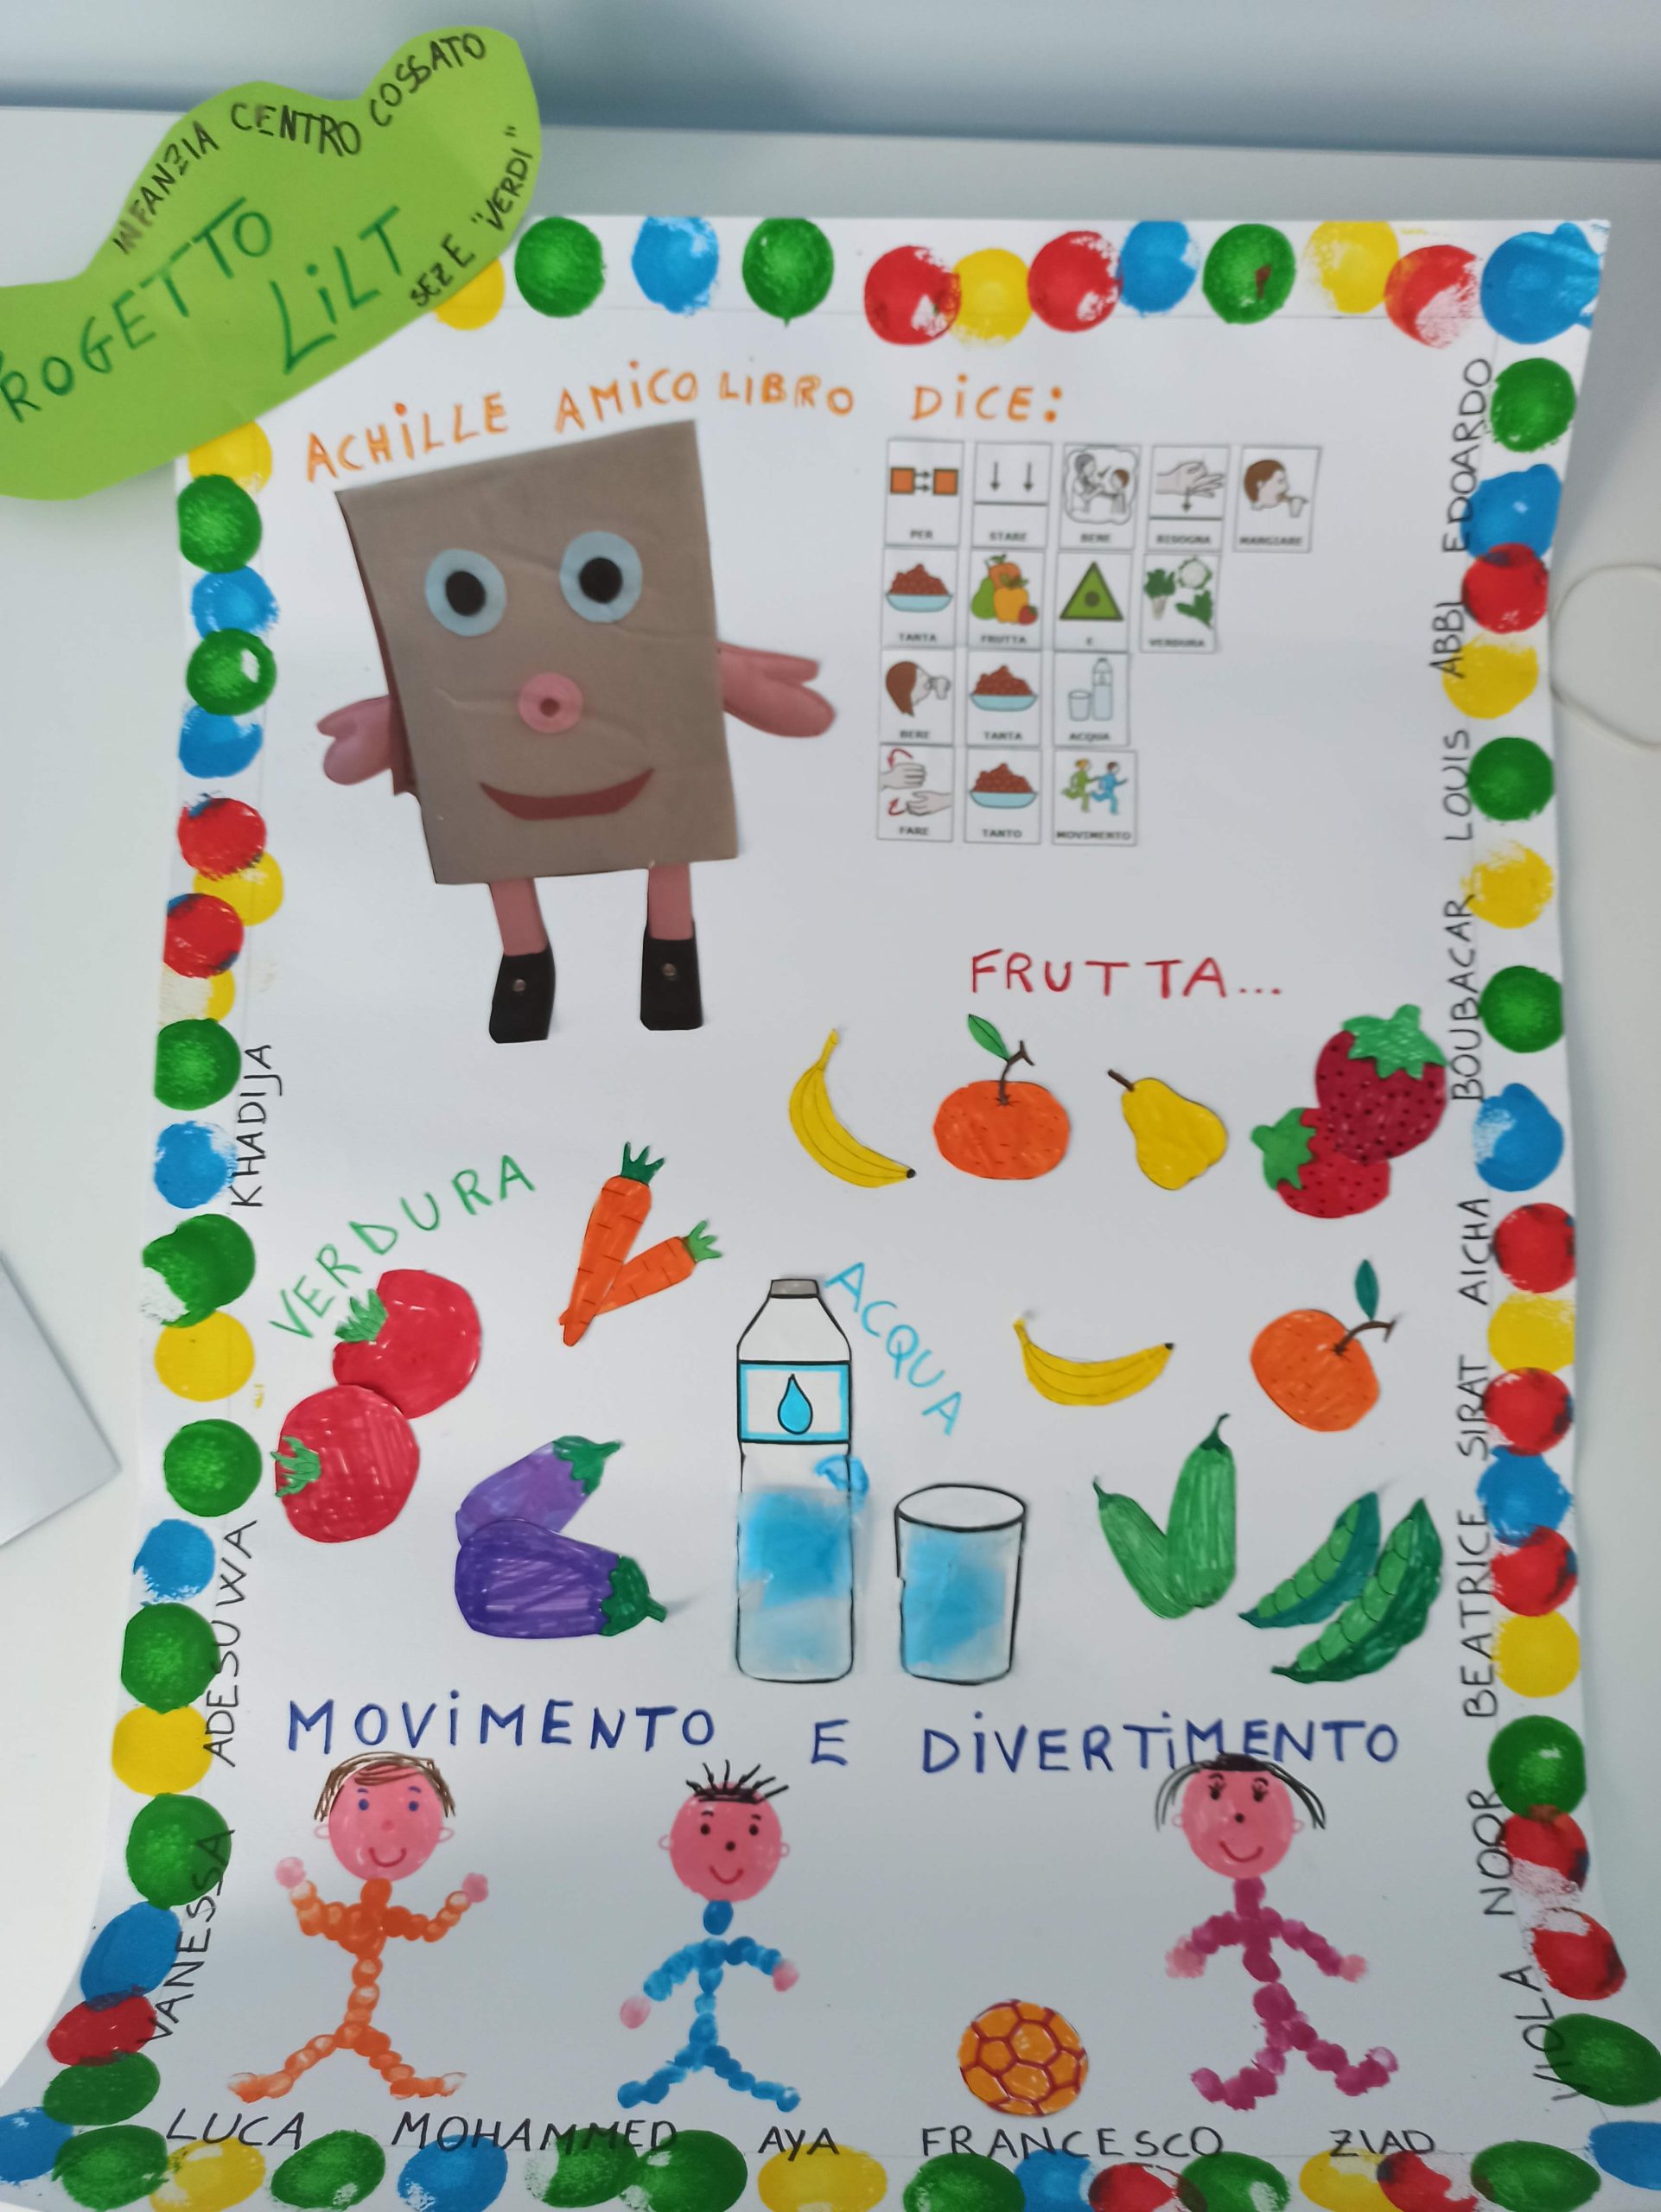 INFANZIA CENTRO COSSATO
ROGETTO
LiLT
SEZ E "VERDI"
ACHiLLE AMiCO LIBRO DiCE:
PER STARE BENE BISOGNA MANGIARE
TANTA FRUTTA E VERDURA
BERE TANTA ACQUA
FARE TANTO MOVIMENTO
FRUTTA...
VERDURA
ACQUA
MOViMENTO E DiVERTiMENTO
KHADIJA
ADESUWA
VANESSA
EDOARDO
ABBI
LOUIS
BOUBACAR
AICHA
SIRAT
BEATRICE
NOOR
VIOLA
LUCA MOHAMMED AYA FRANCESCO ZIAD